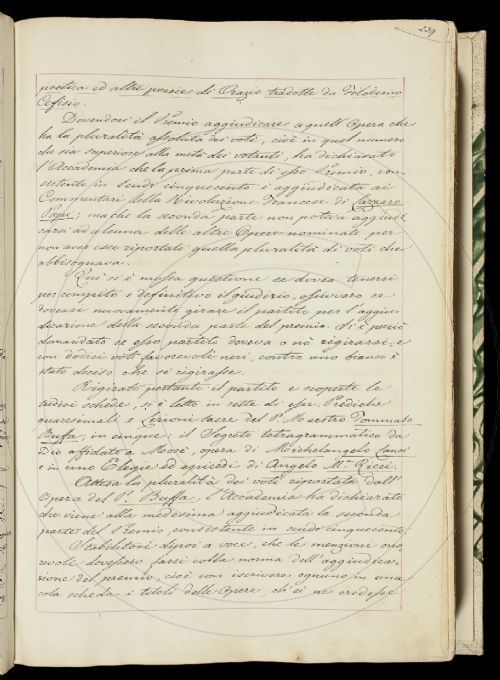 239
poetica ed altre poesie di Orazio tradotte da Filodemo
Cefisio.
Dovendosi il Premio aggiudicare a quell'Opera che
ha la pluralità assoluta dei voti, cioè in quel numero
che sia superiore alla metà dei votanti, ha dichiarato
l'Accademia che la prima parte di esso Premio, con-
sistente in Scudi cinquecento è aggiudicata ai
Commentari della Rivoluzione Francese di Lazzaro
Papi; ma che la seconda parte non poteva aggiudi
carsi ad alcuna delle altre Opere nominate per
non aver esse riportato quella pluralità di voti che
abbisognava.
Qui si è mossa questione se dovea tenersi
per compito e definitivo il giudizio, ossivvero se
dovease nuovamente girare il partito per l'aggiu-
dicazione della seconda parte del premio. Si è perciò
domandato se esso partito doveva o nò rigirarsi, e
con dodici voti favorevoli neri, contro uno bianco è
stato deciso che si rigirasse.
Rigirato pertanto il partito e scoperte le
tredici schede, si è letto in sette di esse Prediche
quaresimali e Lezioni sacre del P. Maestro Tommaso
Buffa; in cinque: il Segreto tetragrammatico da
Dio affidato a Mosè, opera di Michelangelo Lanci
e in uno Elegie ed episodi di Angelo Mª. Ricci.
Attesa la pluralità dei voti riportata dall'
Opera del P. Buffa, l'Accademia ha dichiarato
che viene alla medesima aggiudicata la seconda
parte del Premio, consistente in scudi cinquecento.
Stabilitosi dipoi a voce, che le menzioni ono
revole dovessero farsi colla norma dell'aggiudica-
zione del premio, cioè con iscrivere ognuno in una
sola scheda i titoli delle Opere, ch'ei ne credesse